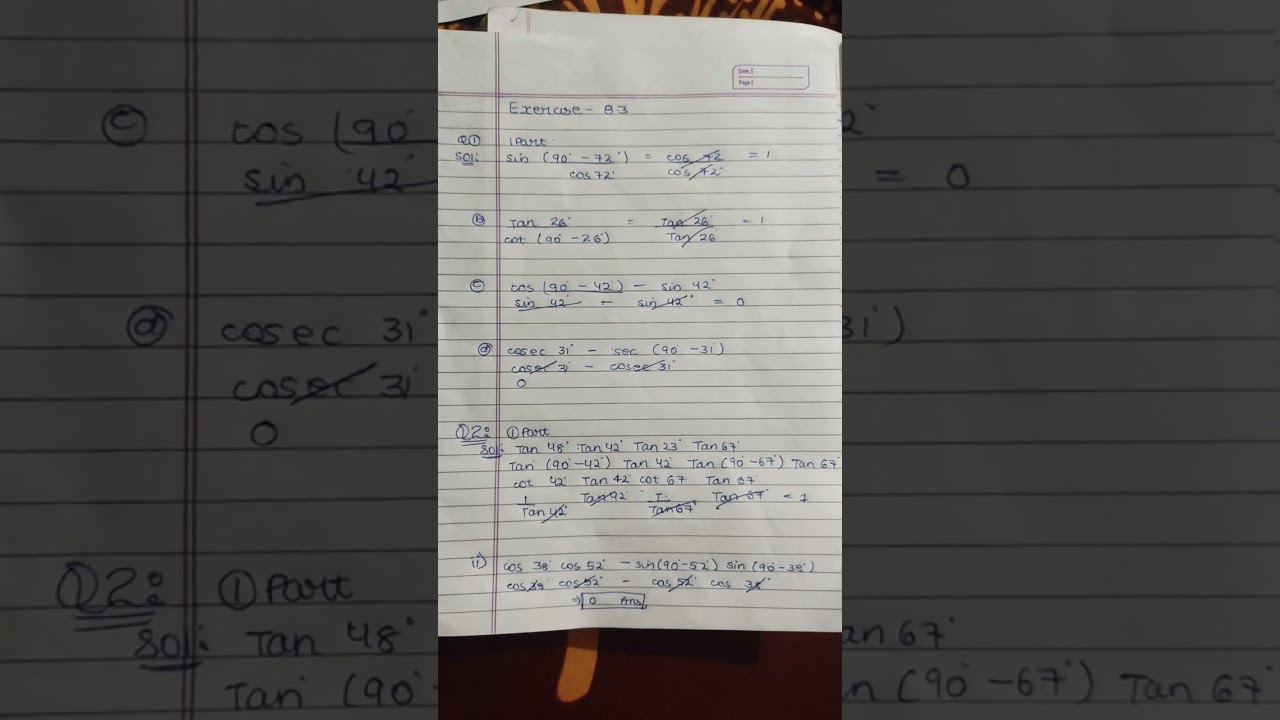 Date |
Page |
Exercise - 8.3
Q① 1 Part
Sol: sin (90° - 72°) = cos 72 = 1
cos 72° cos 72°
ⓑ Tan 26° = Tan 26° = 1
cot (90° - 26°) Tan 26
ⓒ cos (90° - 42) - sin 42°
sin 42° - sin 42° = 0
ⓓ cosec 31° - sec (90° - 31°)
cosec 31° - cosec 31°
0
Q2: ① Part
Sol: Tan 48° Tan 42° Tan 23° Tan 67°
Tan (90° - 42°) Tan 42° Tan (90° - 67°) Tan 67°
cot 42° Tan 42° cot 67 Tan 67°
1 Tan 42° 1 Tan 67° = 1
Tan 42° Tan 67°
ii) cos 38° cos 52° - sin (90° - 52°) sin (90° - 38°)
cos 38° cos 52° - cos 52° cos 38°
⇒ 0 Ans